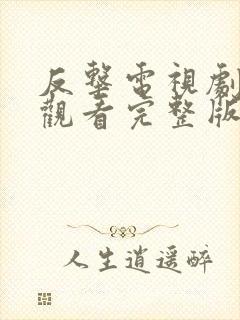 反擊電視劇
觀看完整版
人生逍遥醉